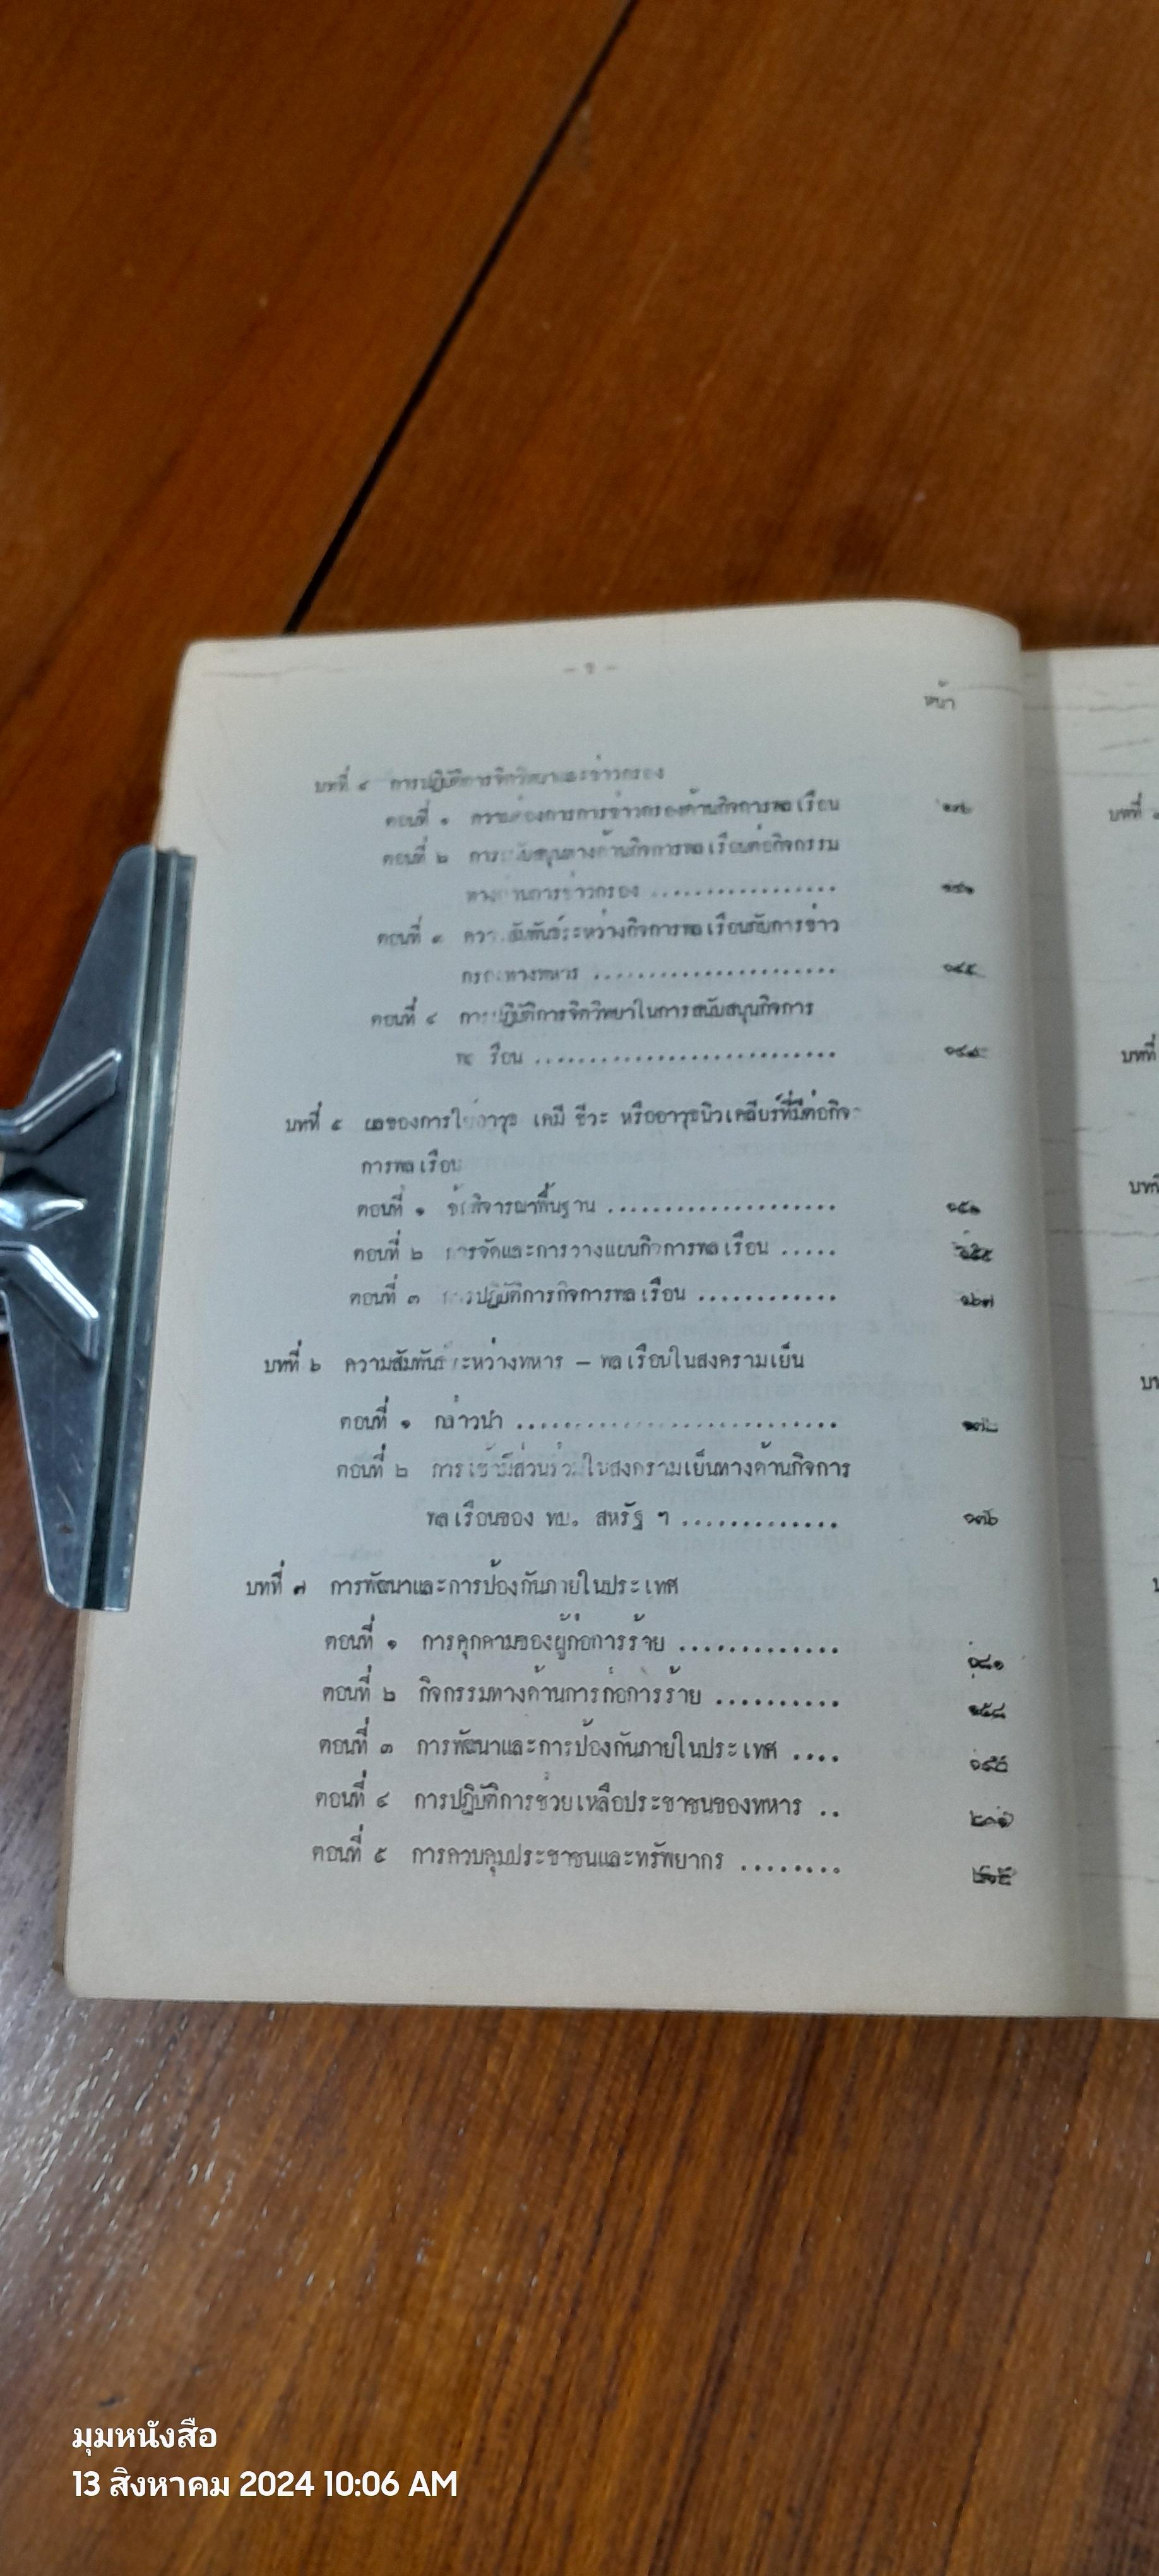 หน้า
บทที่ ๔ การปฏิบัติการจิตวิทยาและข่าวกรอง
ตอนที่ ๑ ความต้องการการข่าวกรองด้านกิจการพลเรือน
ตอนที่ ๒ การสนับสนุนทางด้านกิจการพลเรือนต่อกิจกรรม
ทางด้านการข่าวกรอง ................
ตอนที่ ๓ ความสัมพันธ์ระหว่างกิจการพลเรือนกับการข่าว
กรองทางทหาร .....................
ตอนที่ ๔ การปฏิบัติการจิตวิทยาในการสนับสนุนกิจการ
พล เรือน ..........................
บทที่ ๕ ผลของการใช้อาวุธ เคมี ชีวะ หรืออาวุธนิวเคลียร์ที่มีต่อกิจ-
การพลเรือน
ตอนที่ ๑ ข้อพิจารณาพื้นฐาน ....................
ตอนที่ ๒ การจัดและการวางแผนกิจการพลเรือน .....
ตอนที่ ๓ การปฏิบัติการกิจการพลเรือน ............ ๑๖๗
บทที่ ๖ ความสัมพันธ์ระหว่างทหาร – พลเรือนในสงครามเย็น
ตอนที่ ๑ กล่าวนำ ............................ ๑๗๒
ตอนที่ ๒ การเข้ามีส่วนร่วมในสงครามเย็นทางด้านกิจการ
พลเรือนของ ทบ. สหรัฐ ฯ ............. ๑๗๖
บทที่ ๗ การพัฒนาและการป้องกันภายในประเทศ
ตอนที่ ๑ การคุกคามของผู้ก่อการร้าย ............. ๑๘๑
ตอนที่ ๒ กิจกรรมทางด้านการก่อการร้าย ..........
ตอนที่ ๓ การพัฒนาและการป้องกันภายในประเทศ ....
ตอนที่ ๔ การปฏิบัติการช่วยเหลือประชาชนของทหาร ..
ตอนที่ ๕ การควบคุมประชาชนและทรัพยากร ........
บทที่
บทที่
มุมหนังสือ
13 สิงหาคม 2024 10:06 AM